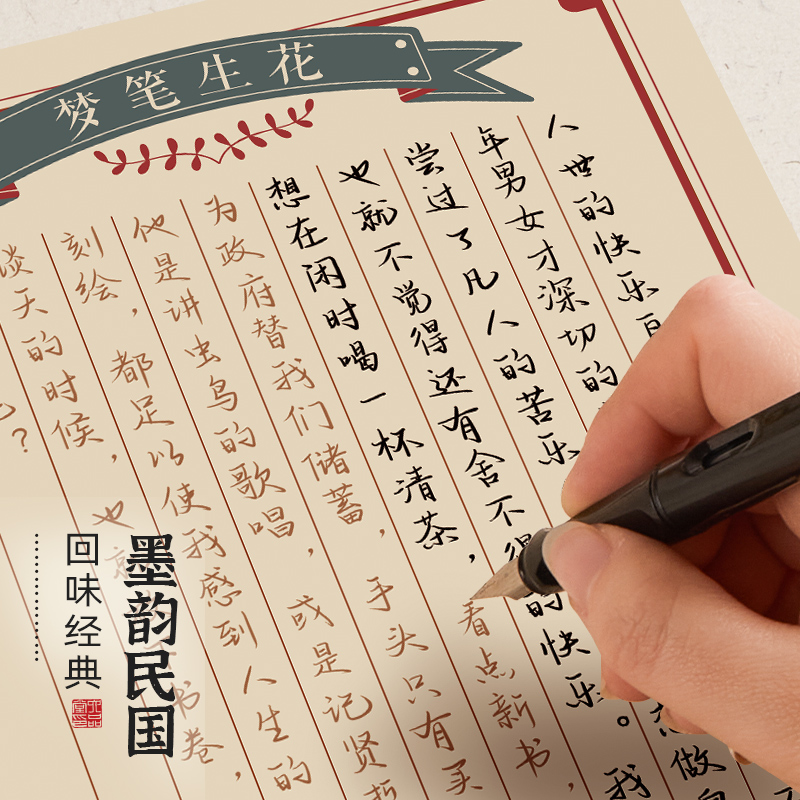 梦笔生花
人世的快乐
年男女才深切的
尝过了凡人的苦乐
做
也就不觉得还有舍不得的快乐。我
想在闲时喝一杯清茶，看点新书，
为政府替我们储蓄，手头只有买
他是讲虫鸟的歌唱，或是记贤哲
刻绘，都足以使我感到人生的
谈天的时候，也就 书卷，
？
墨韵民国
回味经典